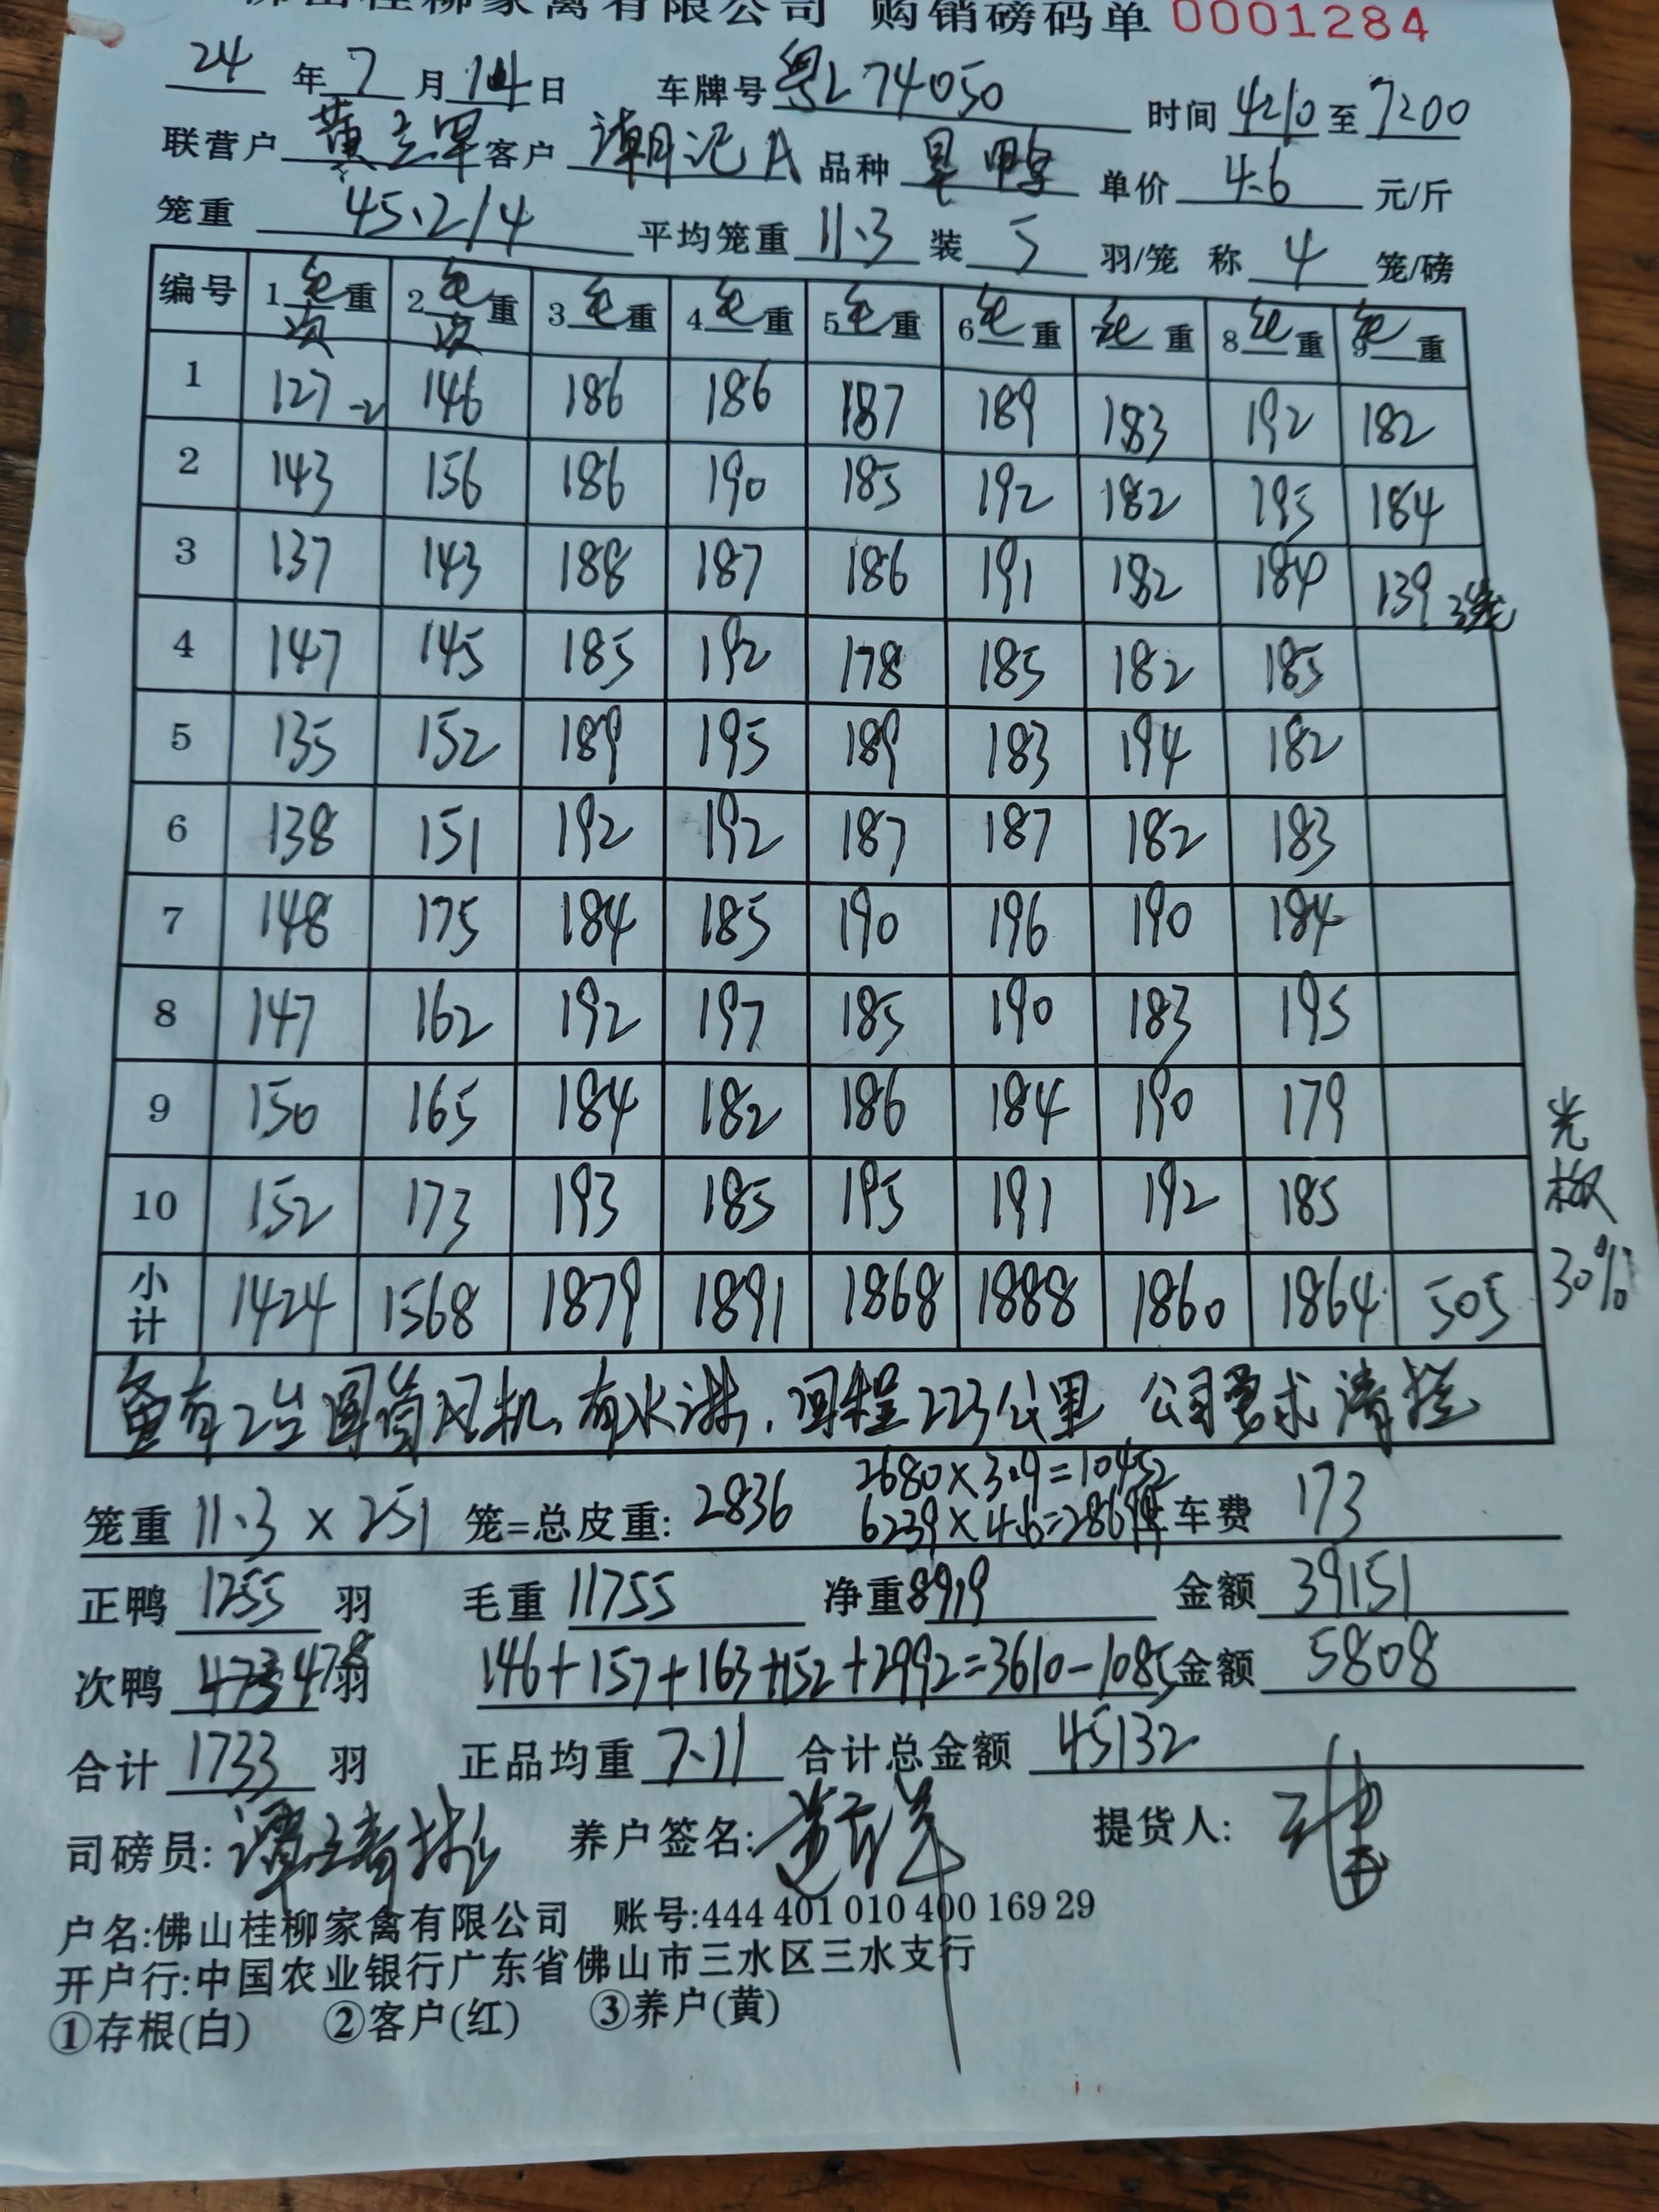 佛山桂柳家禽有限公司 购销磅码单 0001284
24 年 7 月 14 日 车牌号 粤L74050 时间 4210 至 7200
联营户 黄 客户 潮记A 品种 鸭 单价 4.6 元/斤
笼重 45.2/4 平均笼重 11.3 装 5 羽/笼 称 4 笼/磅
编号 1 毛重 次 2 毛重 次 3 毛重 4 毛重 5 毛重 6 毛重 毛重 8 毛重 9 毛重
1 127 -2 146 186 186 187 189 183 192 182
2 143 156 186 190 185 192 182 195 184
3 137 143 188 187 186 191 182 184 139 3笼
4 147 145 185 192 178 185 182 185
5 135 152 189 195 189 183 194 182
6 138 151 192 192 187 187 182 183
7 148 175 184 185 190 196 190 184
8 147 162 192 197 185 190 183 195
9 150 165 184 182 186 184 190 179
10 152 173 193 185 195 191 192 185
小计 1424 1568 1879 1891 1868 1888 1860 1864 505
光板30%
备有2台圆筒风机, 有水淋, 回程223公里 公司要求清拦
2680×3.9=10452
笼重 11.3 × 251 笼=总皮重: 2836 6239×4.6=28699 车费 173
正鸭 1255 羽 毛重 11755 净重 8919 金额 39151
次鸭 478 羽 146+157+163+152+2992=3610-1085 金额 5808
合计 1733 羽 正品均重 7.11 合计总金额 45132
司磅员: 养户签名: 提货人:
户名:佛山桂柳家禽有限公司 账号:444 401 010 400 169 29
开户行:中国农业银行广东省佛山市三水区三水支行
①存根(白) ②客户(红) ③养户(黄)